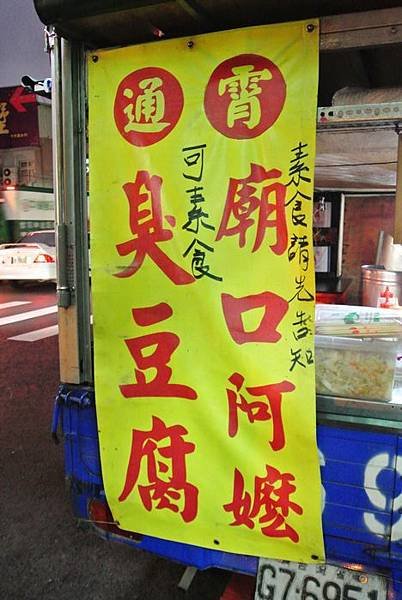 通霄
廟口阿嬤
臭豆腐
素食請先告知
可素食
G7-6951